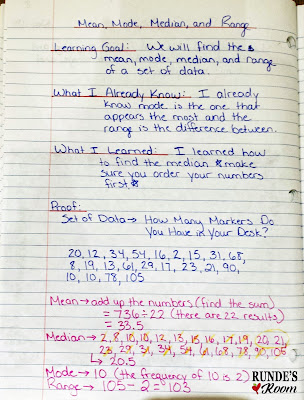 Mean, Mode, Median, and Range
Learning Goal: We will find the
mean, mode, median, and range
of a set of data.
What I Already Know: I already
know mode is the one that
appears the most and the
range is the difference between.
What I Learned: I learned how
to find the median *make
sure you order your numbers
first*
Proof:
Set of Data→ How Many Markers Do
You Have in Your Desk?
20, 12, 34, 54, 16, 2, 15, 31, 68,
8, 19, 13, 61, 29, 17, 23, 21, 90,
10, 10, 78, 105
Mean→ add up the numbers (find the sum)
= 736÷22 (there are 22 results)
= 33.5
Median→ 2, 8, 10, 10, 12, 13, 15, 16, 17, 19, 20, 21,
23, 29, 31, 34, 54, 61, 68, 78, 90, 105
↳ 20.5
Mode→ 10 (the frequency of 10 is 2)
Range→ 105 - 2 = 103
RUNDE'S
Room